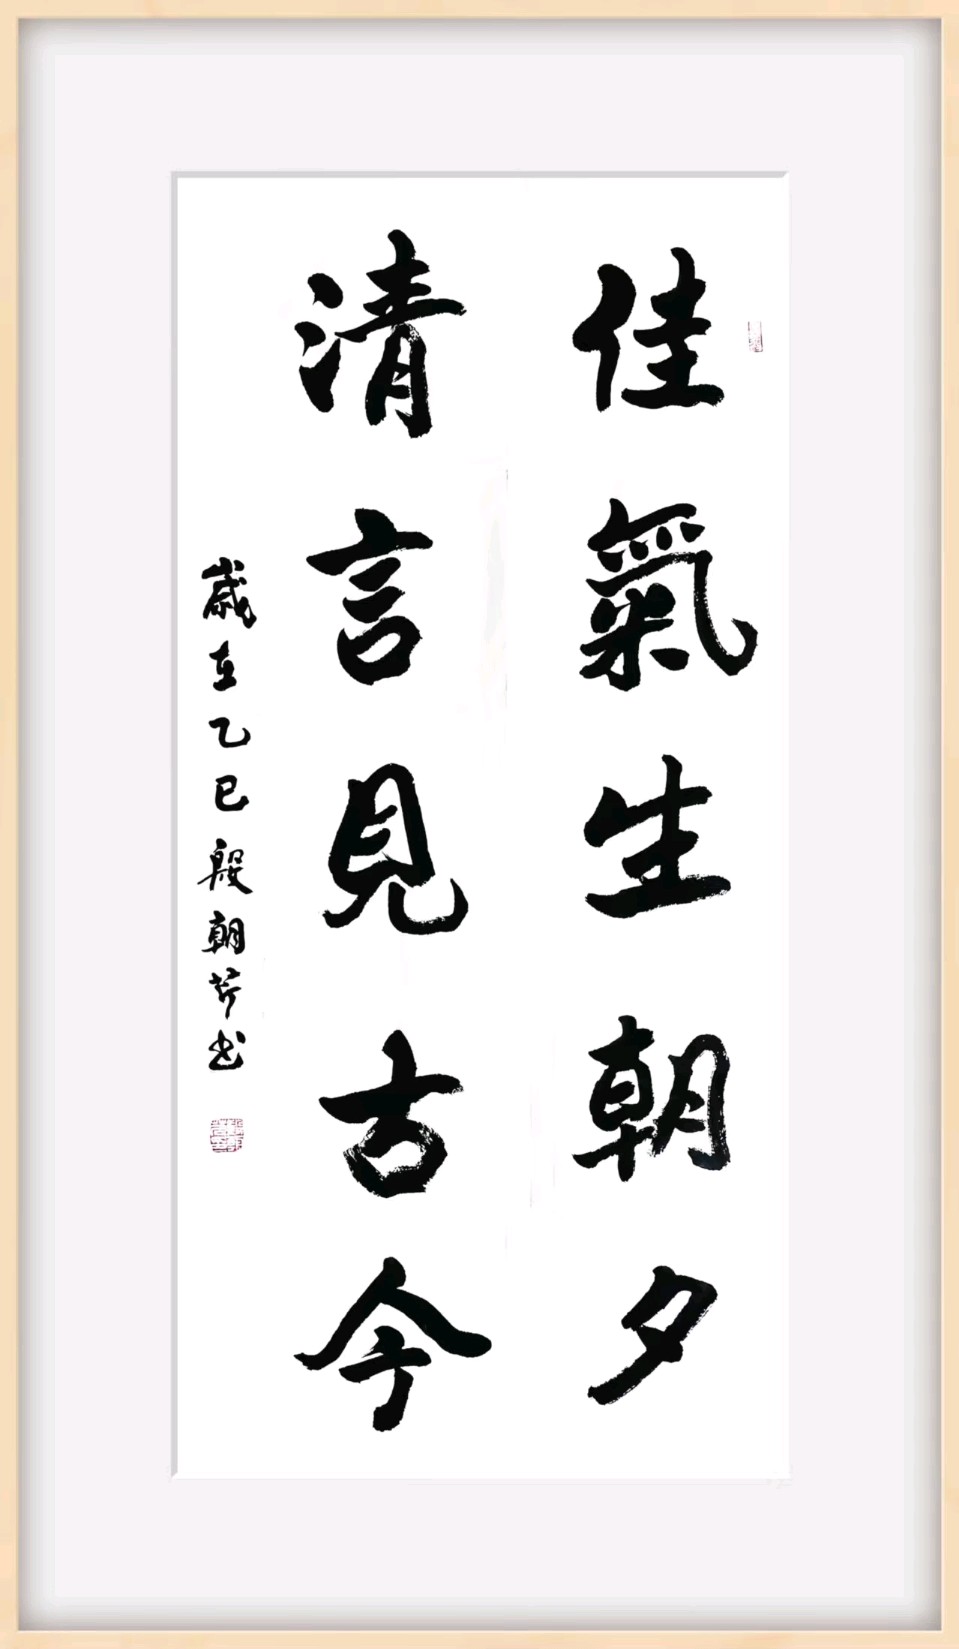 佳氣生朝夕
清言見古今
歲在乙巳殷朝芹书